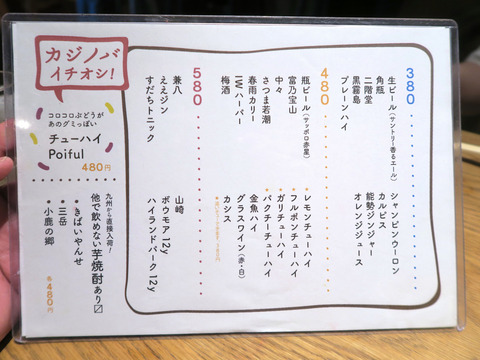 カジノバ
イチオシ!
コロコロぶどうが
あのグミっぽい
チューハイ
Poiful
480円
九州から直接入荷!
他で飲めない芋焼酎あり〼
・きばいやんせ
・三岳
・小鹿の郷
各480円
380
生ビール(サントリー香るエール)
角瓶
二階堂
黒霧島
プレーンハイ
シャンピンウーロン
カルピス
能勢ジンジャー
オレンジジュース
480
瓶ビール(サッポロ赤星)
富乃宝山
中々
さつま若潮
春雨カリー
IWハーパー
梅酒
・レモンチューハイ
・フルボンチューハイ
・ガリチューハイ
・パクチーチューハイ
金魚ハイ
グラスワイン(赤・白)
カシス
580
兼八
ええジン
すだちトニック
山崎
ボウモア 12y
ハイランドパーク 12y